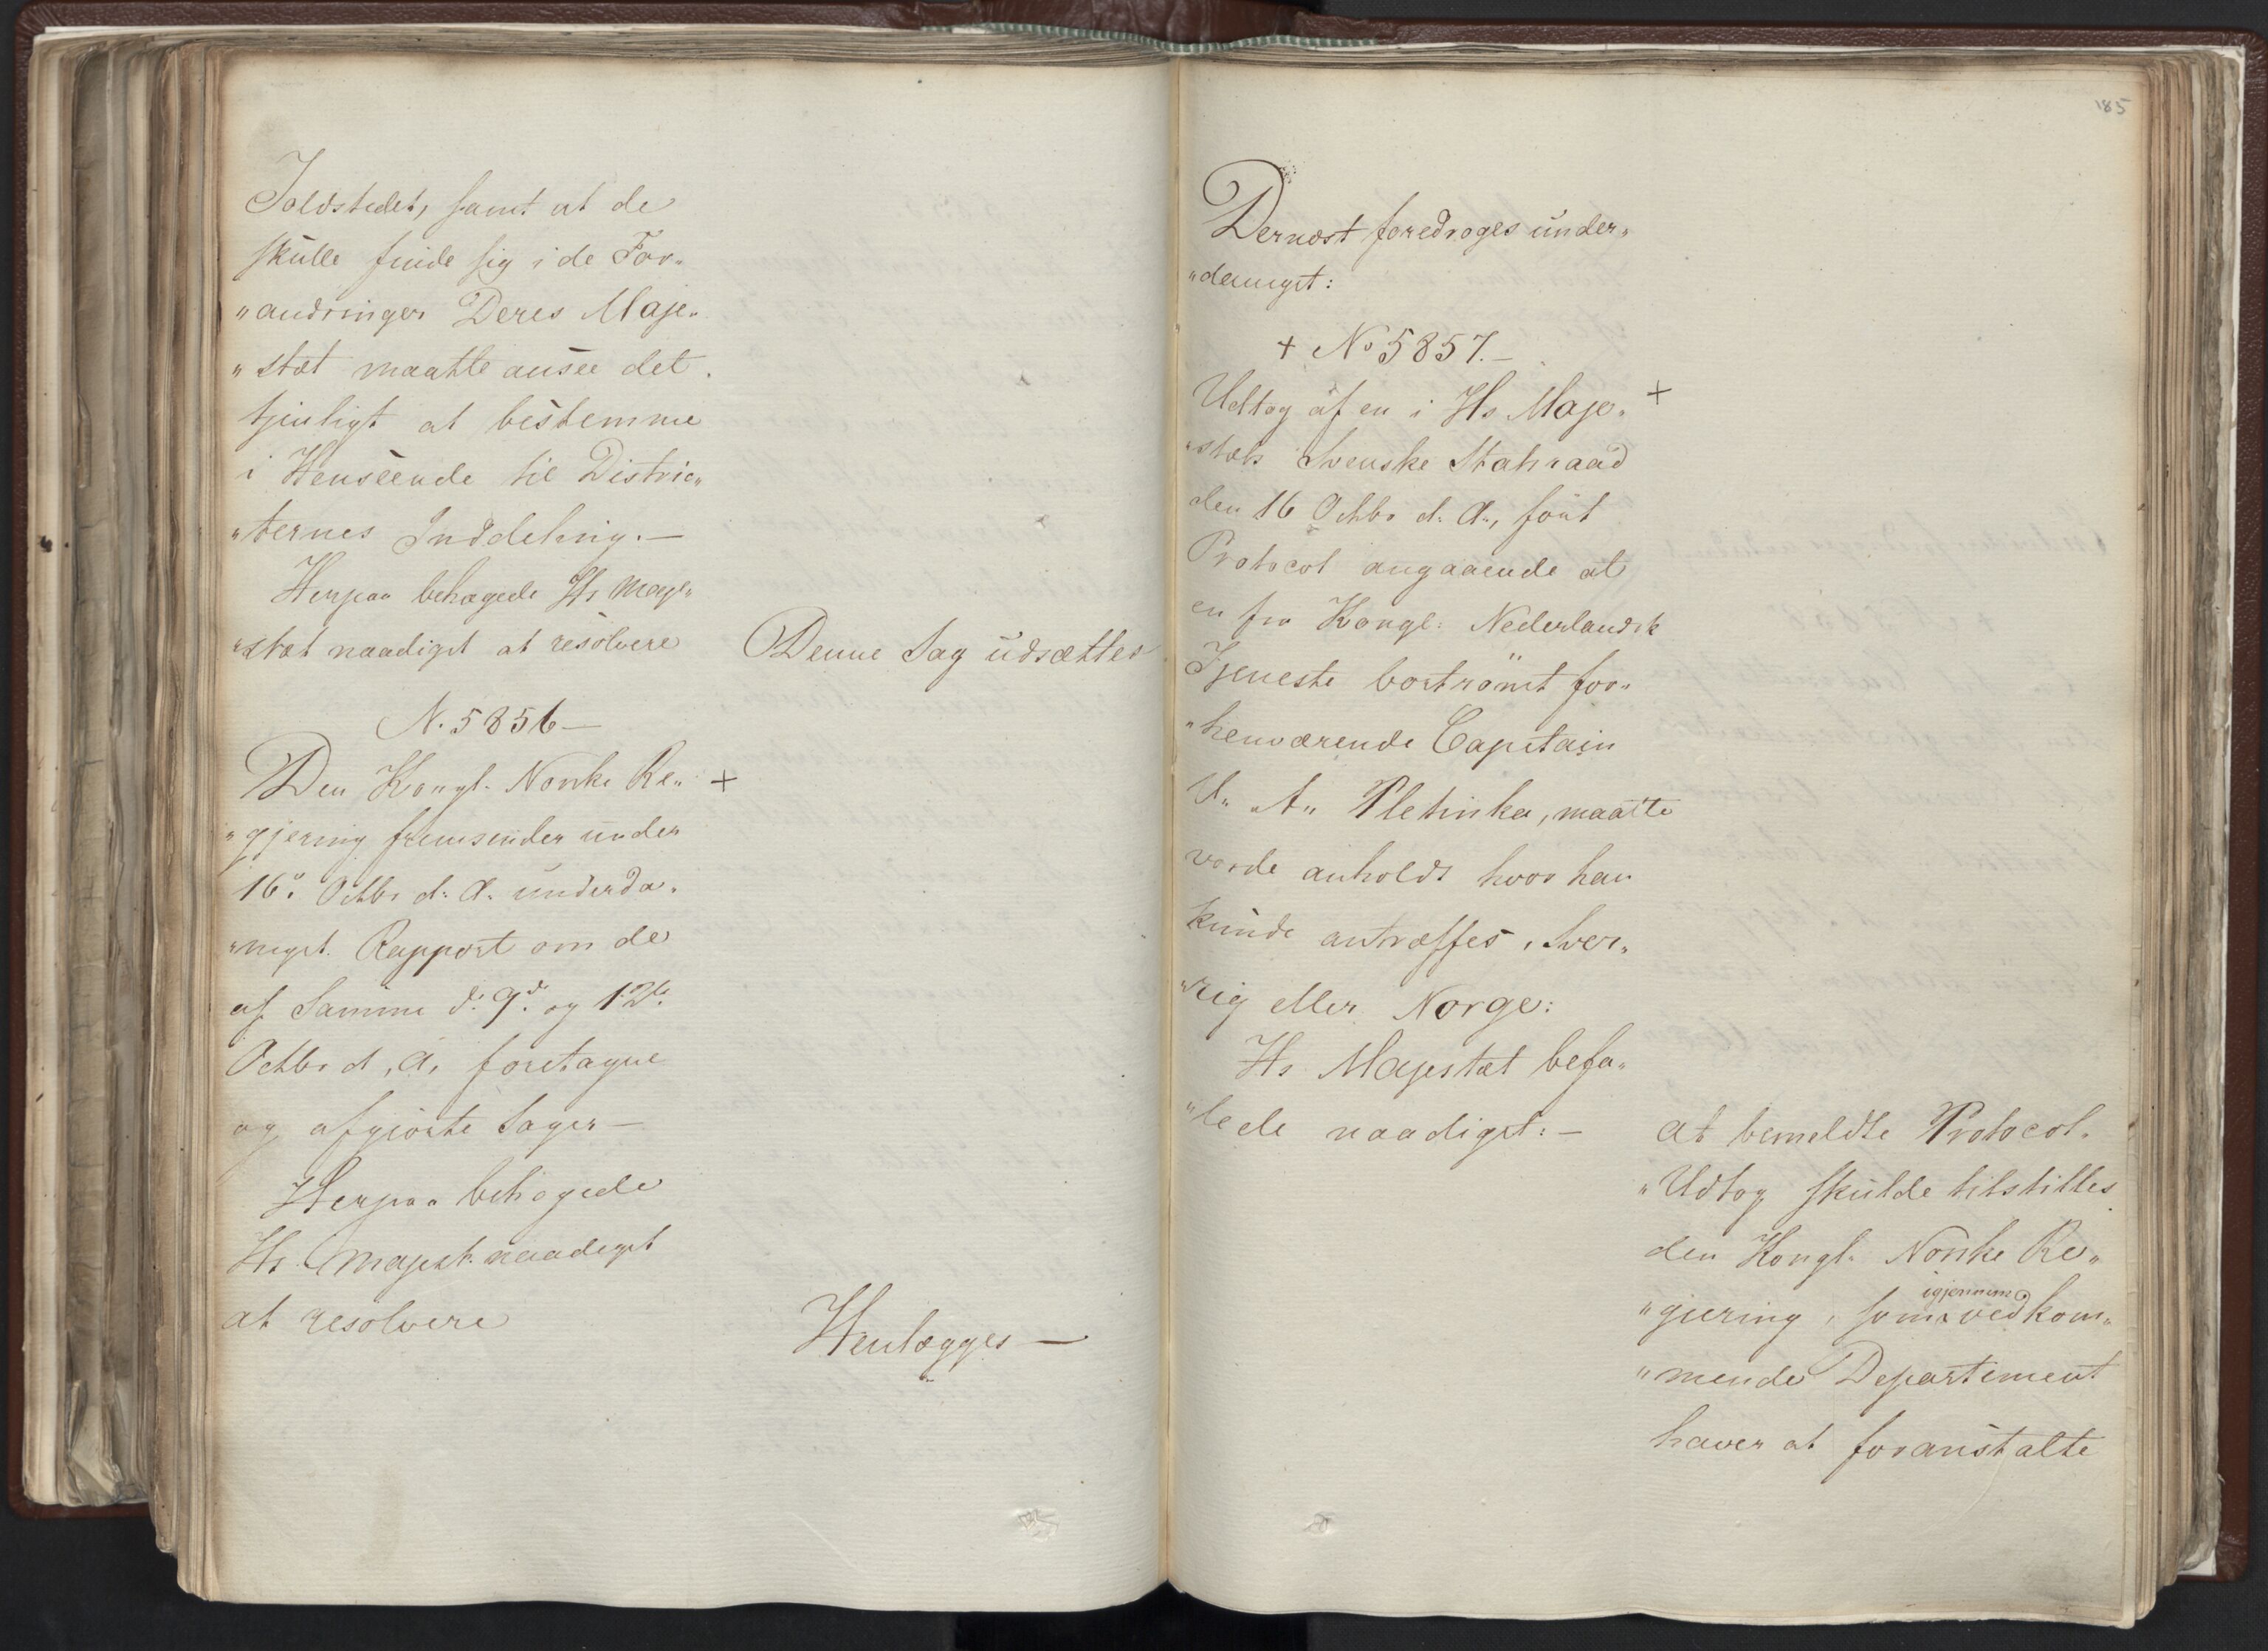 Toldstedet, samt at de
skulle finde sig i de For„
„andringer Deres Maje„
„stæt maatte ansee det
tjenligt at bestemme
i Henseende til Distric„
„ternes Inddeling.—
Herpaa behagede Hs Maje„
„stæt naadigst at resolvere
Denne Sag udsættes
N. 5856—
Den Kongl. Norske Re„ +
„gjering fremsender under
16d. Octbr d. A. underda„
„nigst Rapport om de
af Samme d. 9d. og 12te
Octbr d. A. foretagne
og afgjorte Sager—
Herpaa behagede
Hs. Majest. naadigst
at resolvere
Henlægges—
185
Dernæst foredroges under„
„danigst:
+ No 5857.—
Udtog af en i Hs Maje„ +
„stæts Svenske Statsraad
den 16 Octbr d. A., fört
Protocol angaaende at
en fra Kongl: Nederlandsk
Tjeneste bortrömt for„
„henværende Capitain
A„ Pletinka, maatte
vorde anholdt hvor han
kunde antræffes i Sver„
„rig eller Norge:
Hs Majestæt befa„
„lede naadigst:—
at bemeldte Protocol„
„Udtog skulde tilstilles
den Kongl. Norske Re„
igjennem
„gjering, som vedkom„
„mende Departement
haver at foranstalte